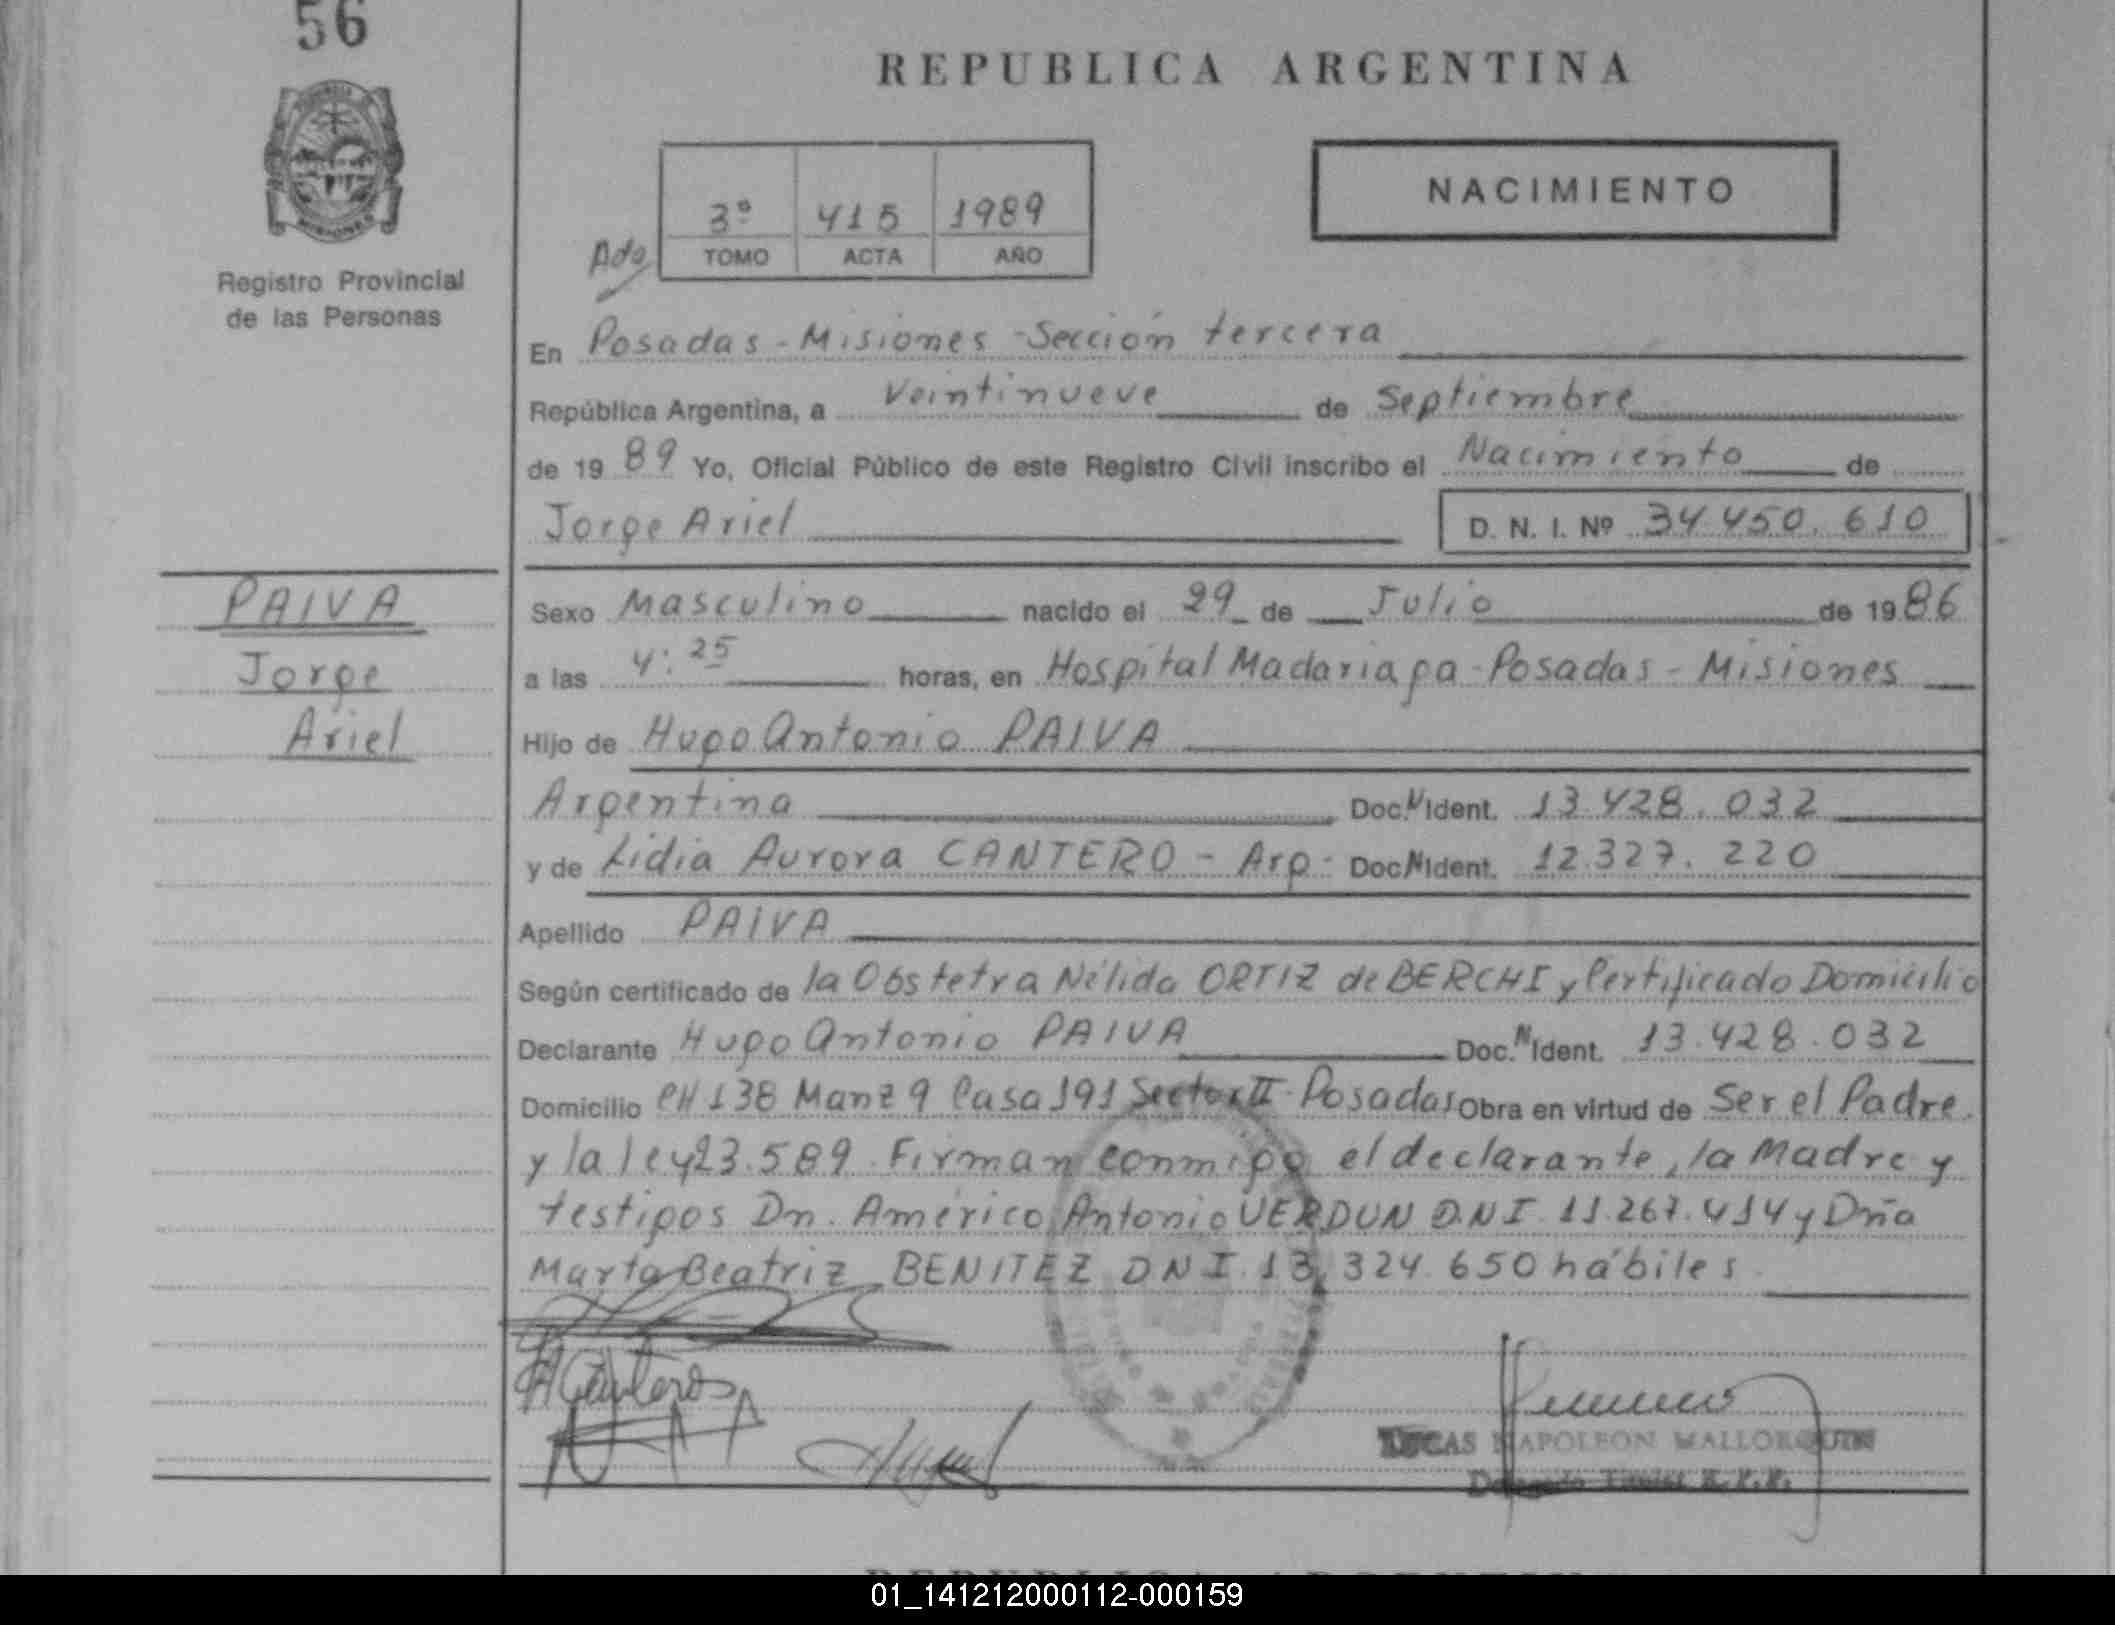 56
REPUBLICA ARGENTINA
NACIMIENTO
3º 415 1989
Ado TOMO ACTA AÑO
Registro Provincial
de las Personas
En Posadas - Misiones - Sección tercera
República Argentina, a Veintinueve de Septiembre
de 1989 Yo, Oficial Público de este Registro Civil inscribo el Nacimiento de
Jorge Ariel D. N. I. Nº 34.450.610
PAIVA
Jorge
Ariel
Sexo Masculino nacido el 29 de Julio de 1986
a las 4:25 horas, en Hospital Madariaga - Posadas - Misiones
Hijo de Hugo Antonio PAIVA
Argentina Doc. N Ident. 13.428.032
y de Lidia Aurora CANTERO - Arg - Doc N Ident. 12.327.220
Apellido PAIVA
Según certificado de la Obstetra Nélida ORTIZ de BERCHI y Certificado Domicilio
Declarante Hugo Antonio PAIVA Doc. N Ident. 13.428.032
Domicilio CH 138 Manz 9 Casa 191 Sector II - Posadas Obra en virtud de Ser el Padre
y la ley 23.589. Firman conmigo el declarante, la Madre y
testigos Dn. Américo Antonio VERDUN D.N.I. 11.267.414 y Dña
Marta Beatriz BENITEZ D N I. 13.324.650 hábiles
LUCAS NAPOLEON MALLORQUIN
Delegado Titular R.P.P.
REPUBLICA ARGENTINA
01_141212000112-000159